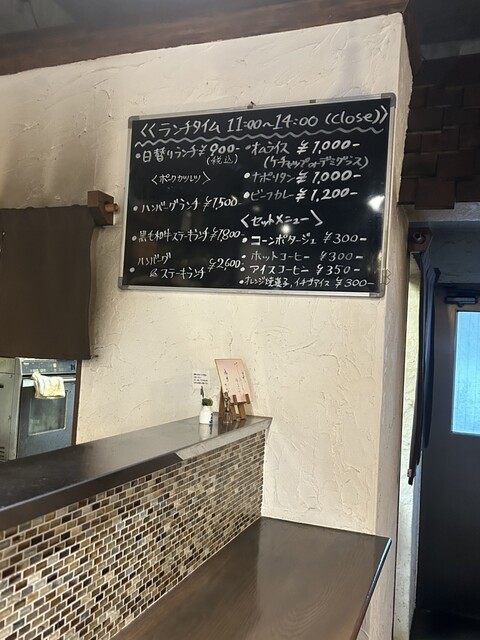 <<ランチタイム 11:00~14:00 (Close)>>
・日替りランチ ¥900-
(税込)
<ポークカツレツ>
・ハンバーグランチ ¥1,500-
・黒毛和牛ステーキランチ ¥1,800-
・ハンバーグ
&ステーキランチ ¥2,600-
・オムライス ¥1,000-
(ケチャップ or デミグラス)
・ナポリタン ¥1,000-
・ビーフカレー ¥1,200-
<セットメニュー>
・コーンポタージュ ¥300-
・ホットコーヒー ¥300-
・アイスコーヒー ¥350-
・オレンジ焼菓子、イチゴアイス ¥300-